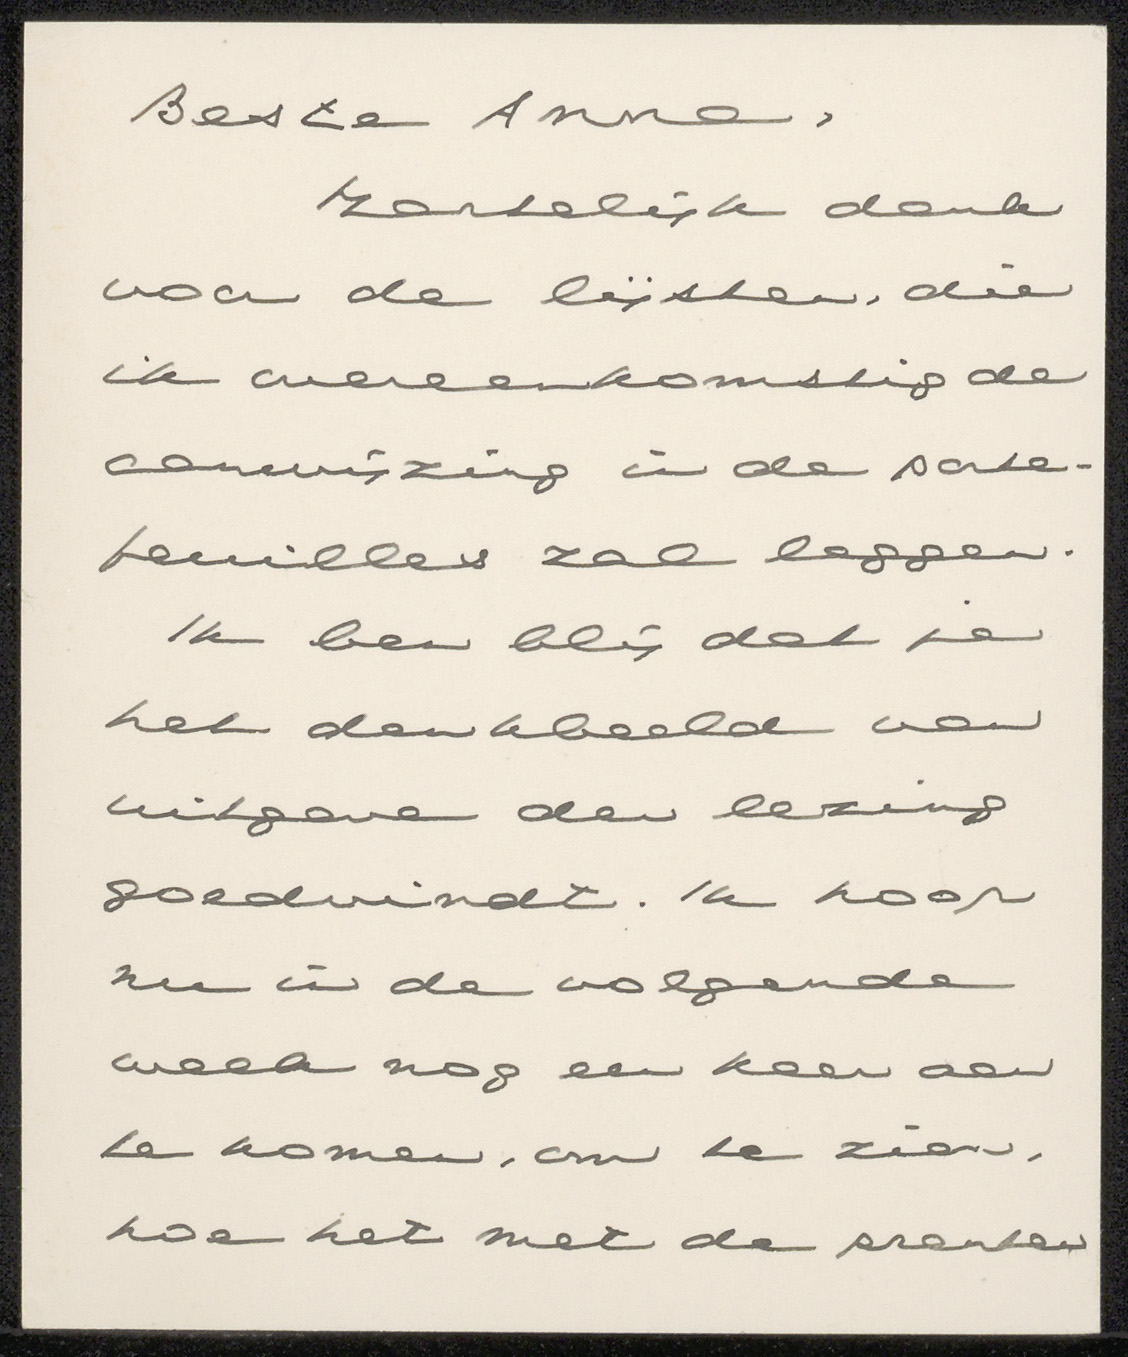 Beste Anna,
Hartelijk dank
voor de lijsten, die
ik overeenkomstig de
aanwijzing in de porte-
feuilles zal leggen.
Ik ben blij dat je
het denkbeeld van
uitgave der lezing
goedvindt. Ik hoop
nu in de volgende
week nog een keer aan
te komen, om te zien,
hoe het met de prenten